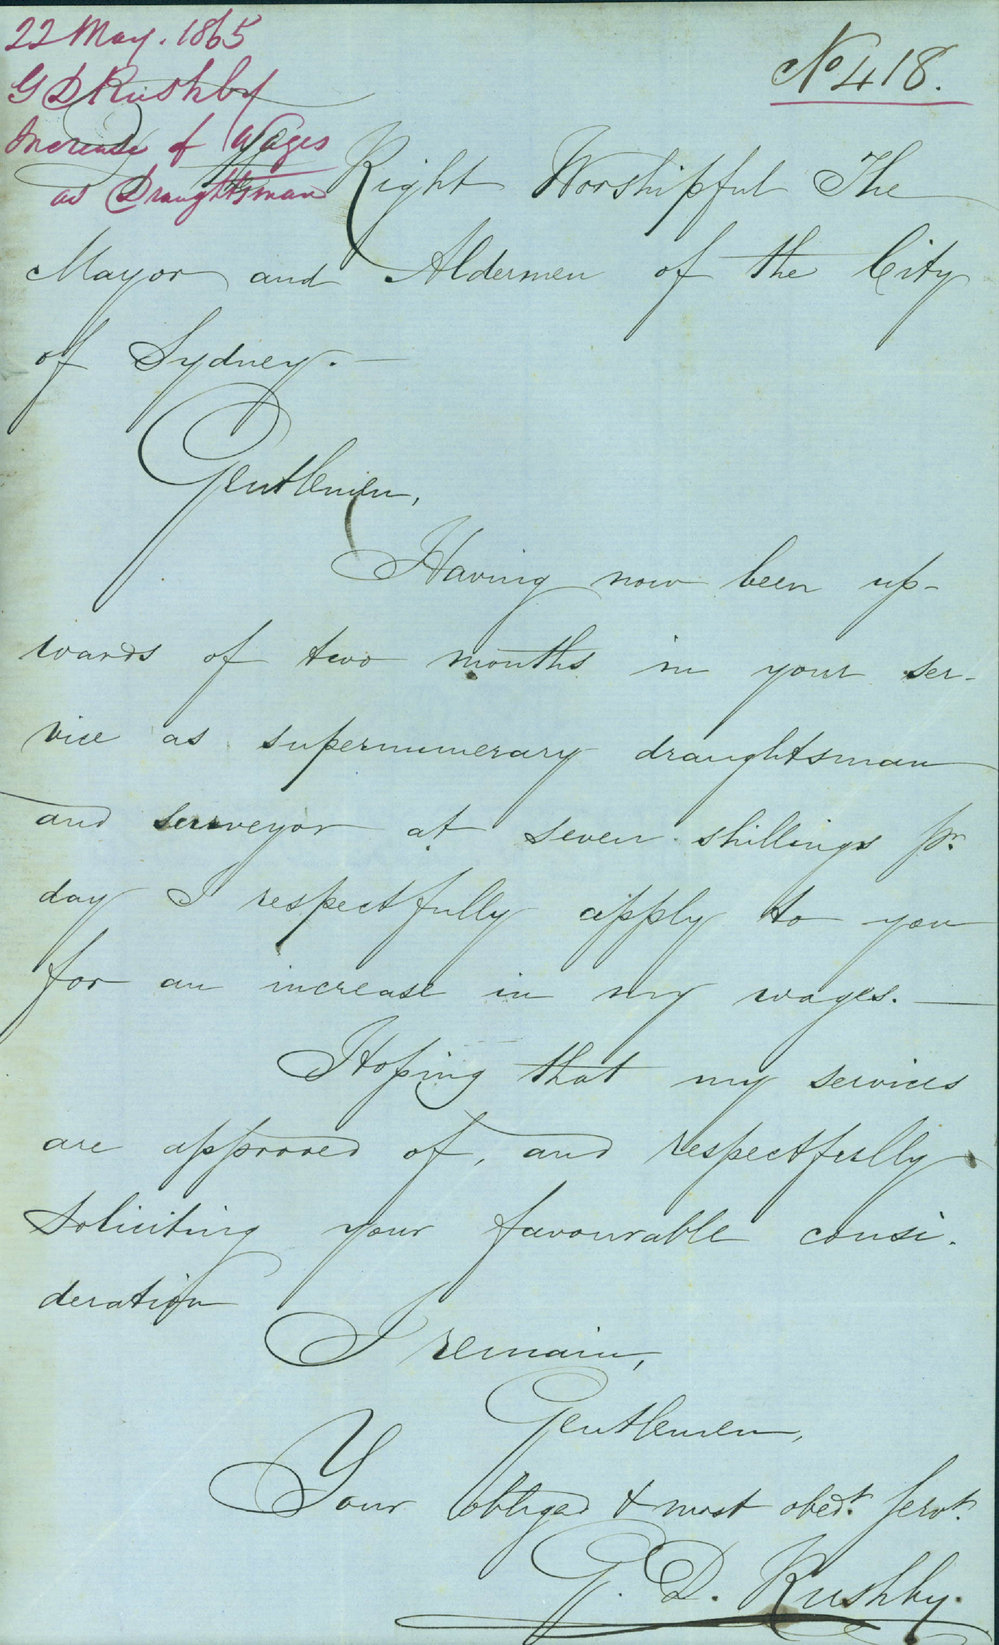 22 May. 1865
G D Rushby
Increase of Wages
as Draughtsman
No 418.
Right Worshipful The
Mayor and Aldermen of the City
of Sydney.—
Gentlemen,
Having now been up-
wards of two months in your ser-
vice as supernumerary draughtsman
and surveyor at seven shillings pr.
day I respectfully apply to you
for an increase in my wages.—
Hoping that my services
are approved of, and respectfully
soliciting your favourable consi-
deration
I remain,
Gentlemen,
Your obliged & most obedt. servt.
G. D. Rushby.